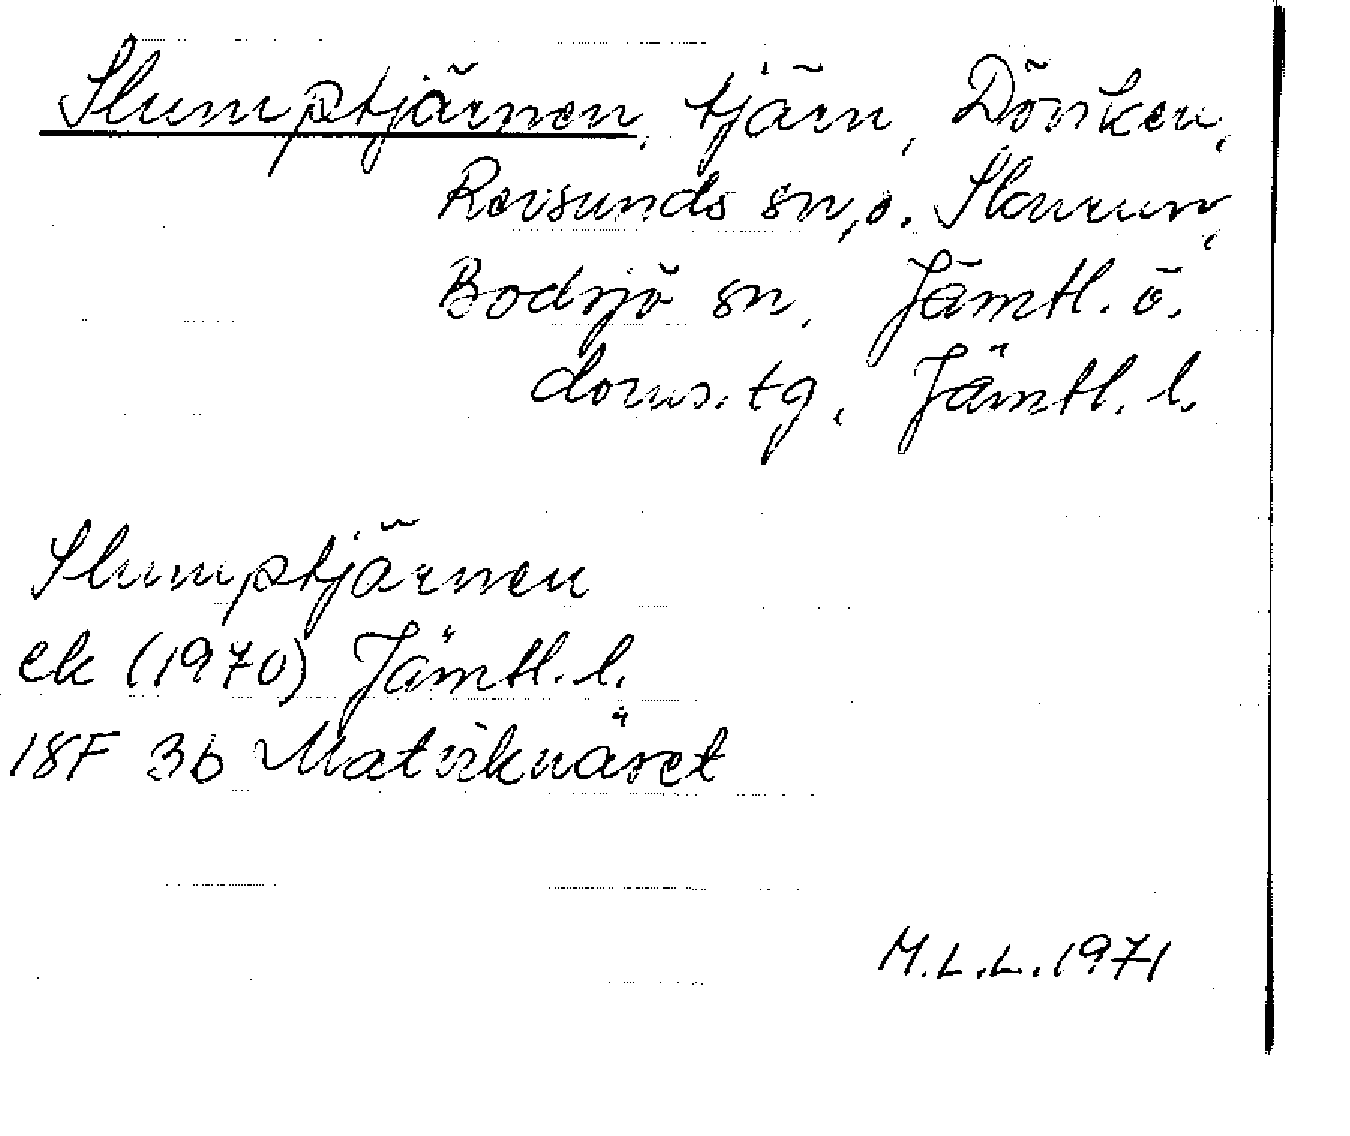 Slumptjärnen, tjärn, Dönken,
Revsunds sn, o. Stavren,
Bodsjö sn, Jämtl. ö.
doms.tg, Jämtl. l.
Slumptjärnen
ek (1970) Jämtl. l.
18F 3b Matviknäset
M.L.L. 1971